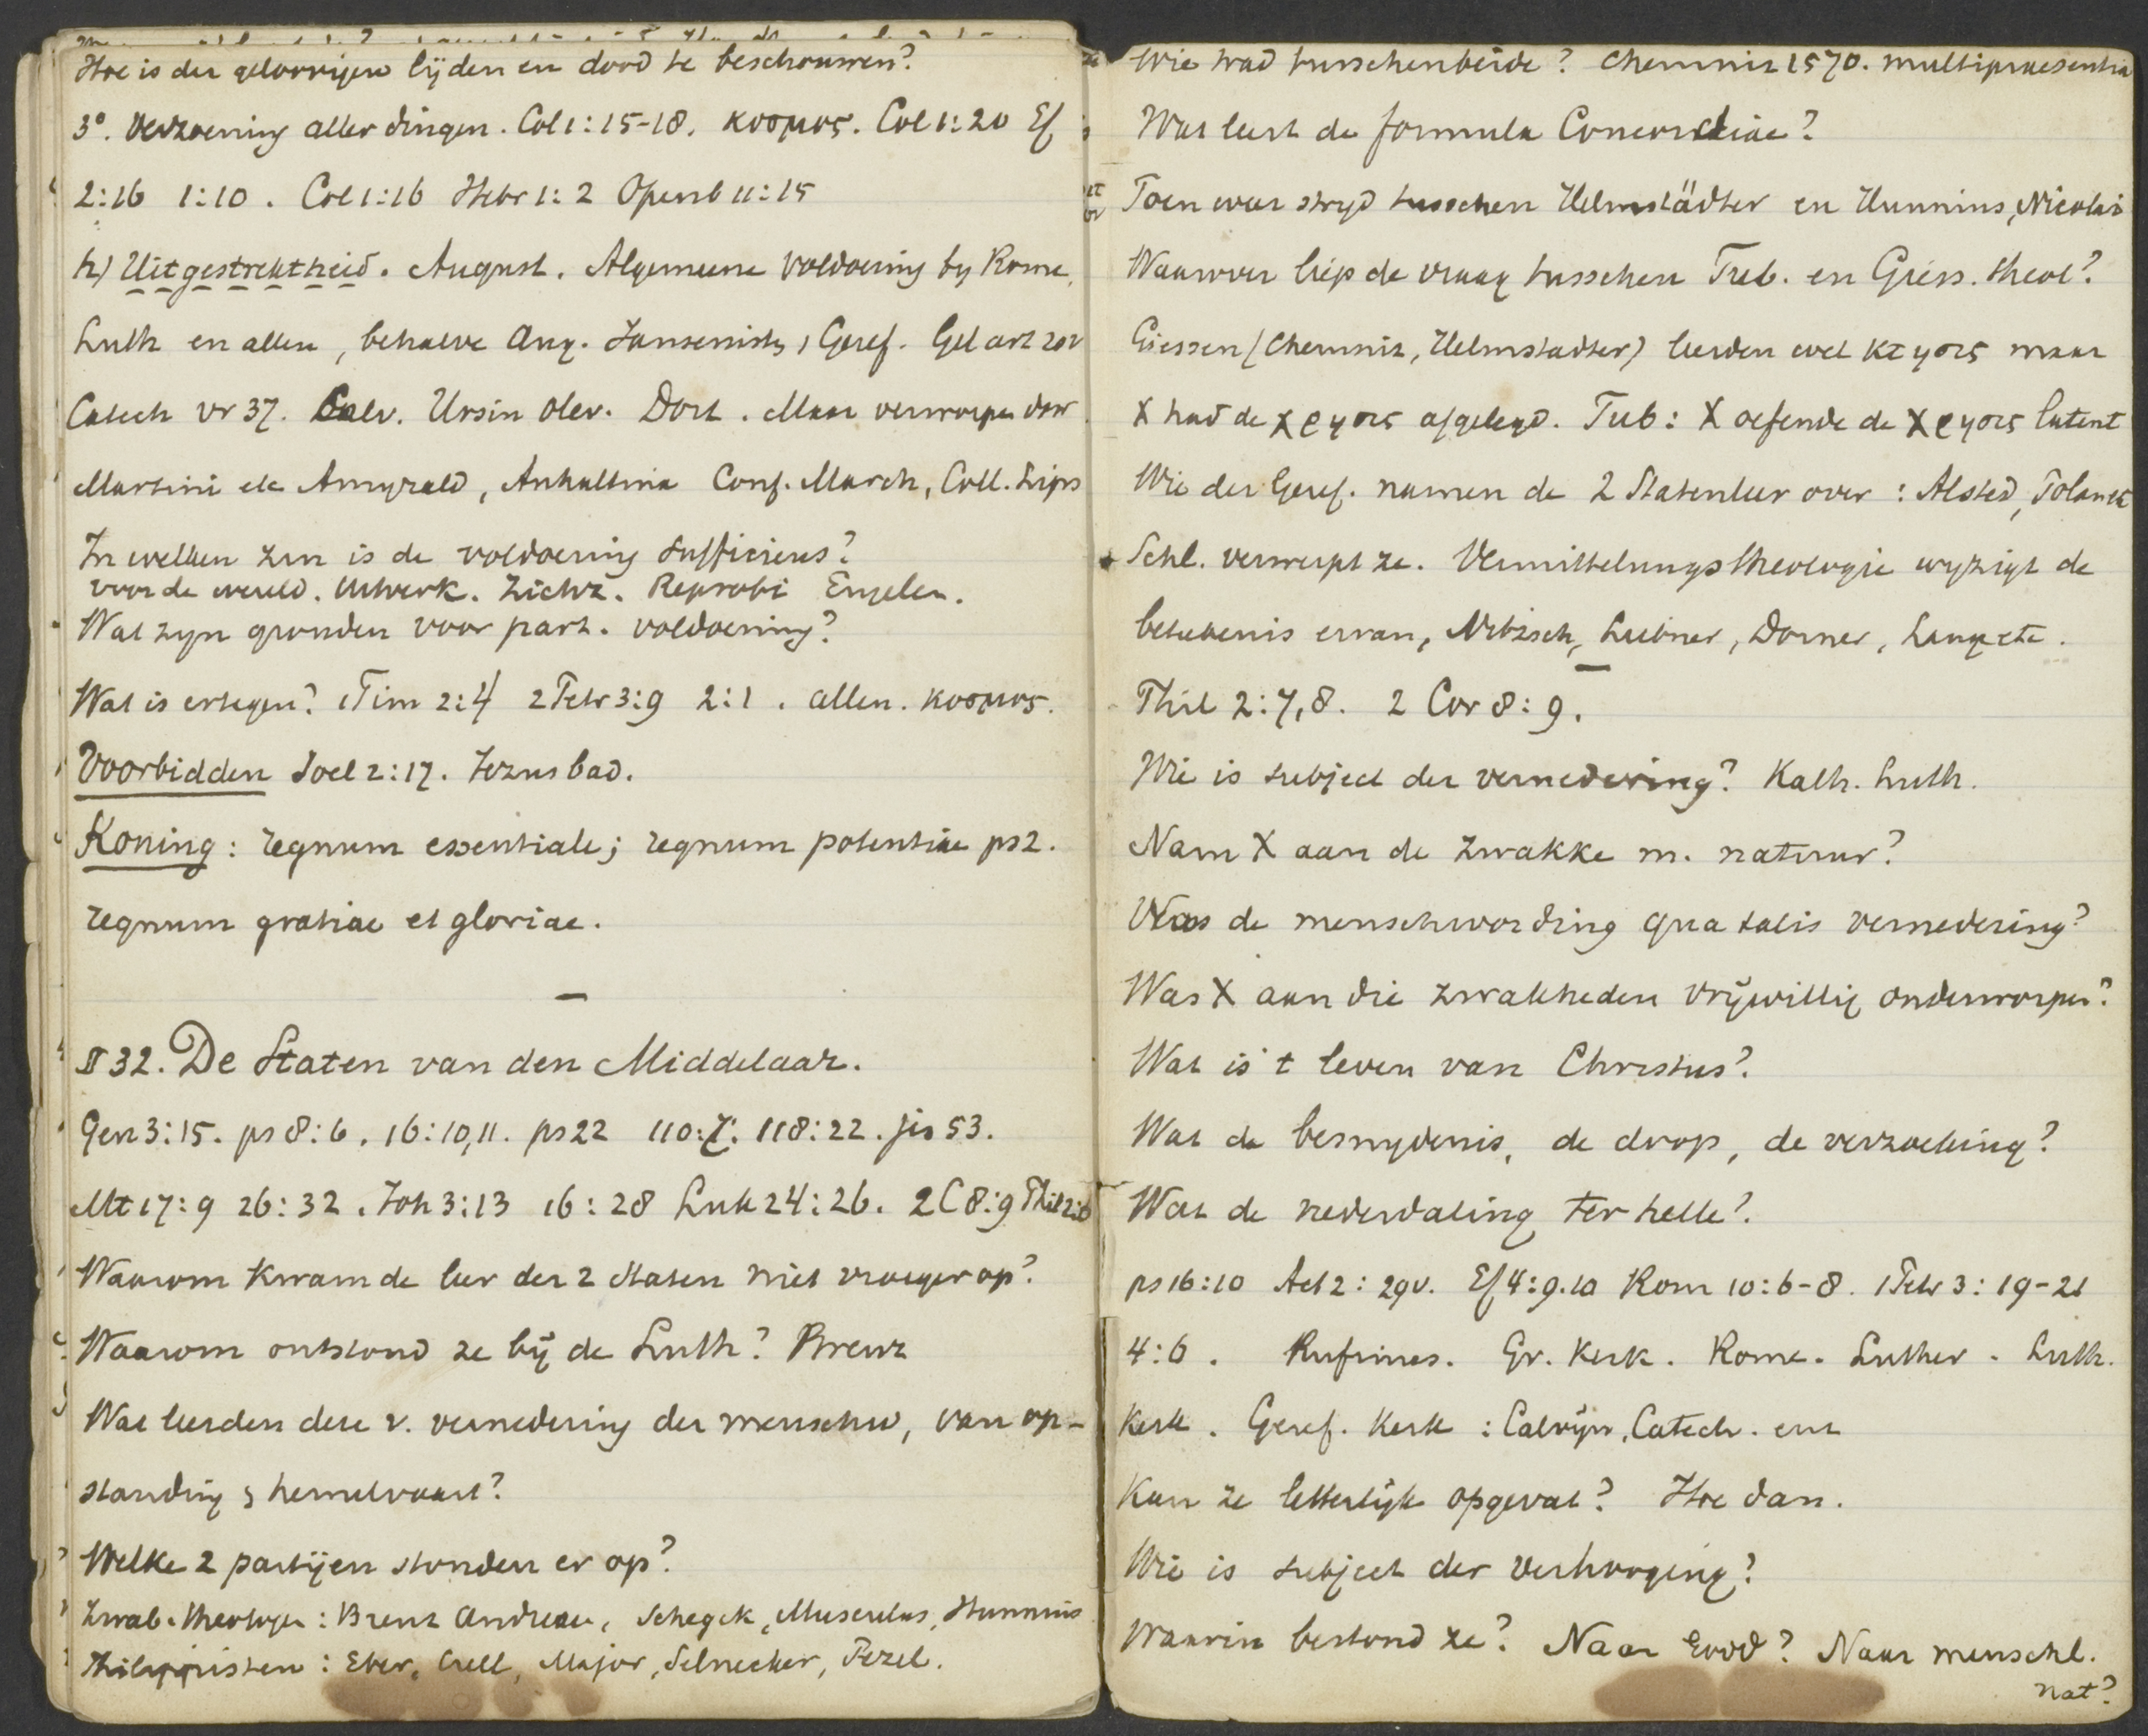 Hoe is der geloovigen lijden en dood te beschouwen?
3°. Verzoening aller dingen. Col 1:15-18. κοσμος. Col 1:20 Ef
2:16 1:10. Col 1:16 Hebr 1:2 Openb 11:15
h) Uitgestrektheid. August. Algemeene voldoening by Rome,
Luth en allen, behalve Aug. Jansenisten, Geref. Gel art 20v
Catech vr 37. Calv. Ursin Olev. Dort. Maar verworpen door
Martini etc Amyrald, Anhaltina Conf. March, Coll. Lips
In welken zin is de voldoening sufficiens?
voor de wereld. Uitverk. Zichz. Reprobi Engelen.
Wat zyn gronden voor part. voldoening?
Wat is ertegen? 1 Tim 2:4 2 Petr 3:9 2:1. allen. κοσμος.
Voorbidden Joel 2:17. Jezus bad.
Koning: regnum essentiale; regnum potentiae ps 2.
regnum gratiae et gloriae.
—
§ 32. De Staten van den Middelaar.
Gen 3:15. ps 8:6. 16:10,11. ps 22 110:7. 118:22. jes 53.
Mt 17:9 26:32. Joh 3:13 16:28 Luk 24:26. 2 C 8:9 Phil 2:6
Waarom kwam de leer der 2 staten niet vroeger op?
Waarom ontstond ze bij de Luth? Brenz
Wat leerden deze v. vernedering der menschw, van op-
standing & hemelvaart?
Welke 2 partijen stonden er op?
Zwab. theologen: Brenz Andreae, Schegck, Musculus, Hunnius
Philippisten: Eber, Crell, Major, Selnecker, Pezel.
Wie trad tusschenbeide? Chemniz 1570. multipraesentia
Wat leert de formula Concordiae?
Toen was stryd tusschen Helmstädter en Hunnius, Nicolai
Waarover liep de vraag tusschen Tub. en Giess. theol?
Giessen (Chemniz, Helmstadter) leerden wel κτησις maar
X had de χρησις afgelegd. Tub: X oefende de χρησις latent
Wie der Geref. namen de 2 Statenleer over: Alsted, Polanus
Schl. verwerpt ze. Vermittelungstheologie wyzigt de
beteekenis ervan, Nitzsch, Liebner, Dorner, Lange etc.
—
Phil 2:7,8. 2 Cor 8:9.
Wie is subject der vernedering? Kath. Luth.
Nam X aan de zwakke m. natuur?
Was de menschwording qua talis vernedering?
Was X aan die zwakheden vrijwillig onderworpen?
Wat is 't leven van Christus?
Wat de besnydenis, de doop, de verzoeking?
Wat de nederdaling ter helle?
ps 16:10 Act 2:29v. Ef 4:9.10 Rom 10:6-8. 1 Petr 3:19-21
4:6. Rufinus. Gr. Kerk. Rome. Luther. Luth.
Kerk. Geref. Kerk: Calvijn, Catech. enz
Kan ze letterlijk opgevat? Hoe dan.
Wie is subject der verhooging?
Waarin bestond ze? Naar Godd? Naar menschl.
nat?